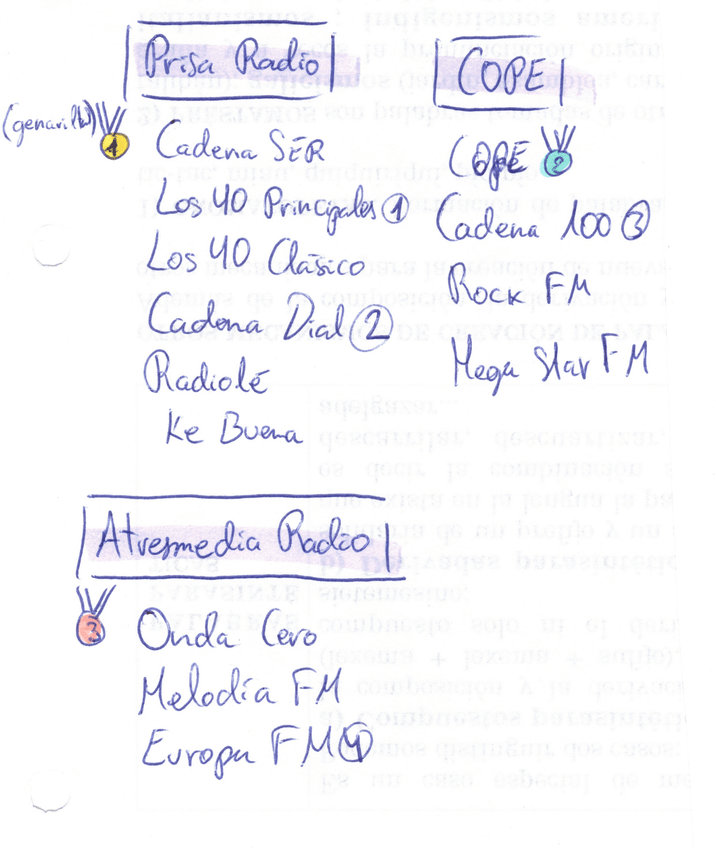 Prisa Radio
1
Cadena SER
Los 40 Principales 1
Los 40 Clásico
Cadena Dial 2
Radiolé
Ke Buena
COPE
COPE 2
Cadena 100 3
Rock FM
Mega Star FM
Atresmedia Radio
3
Onda Cero
Melodía FM
Europa FM 4